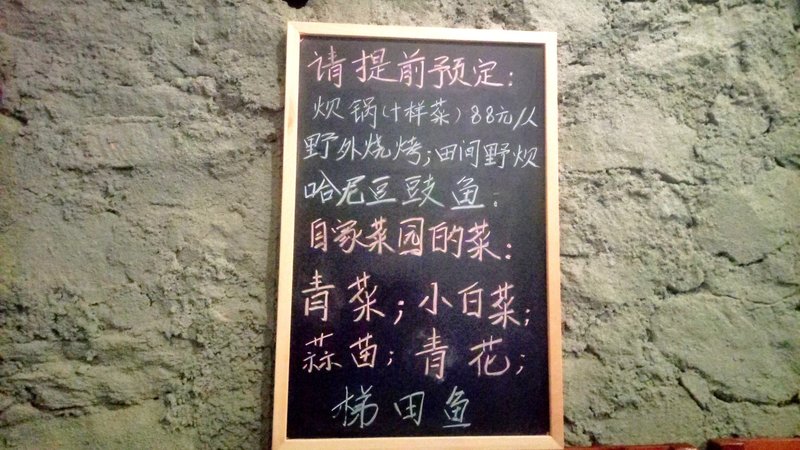 请提前预定：
炊锅(十样菜)88元/人
野外烧烤；田间野炊
哈尼豆豉鱼：
自家菜园的菜：
青菜；小白菜；
蒜苗；青花；
梯田鱼